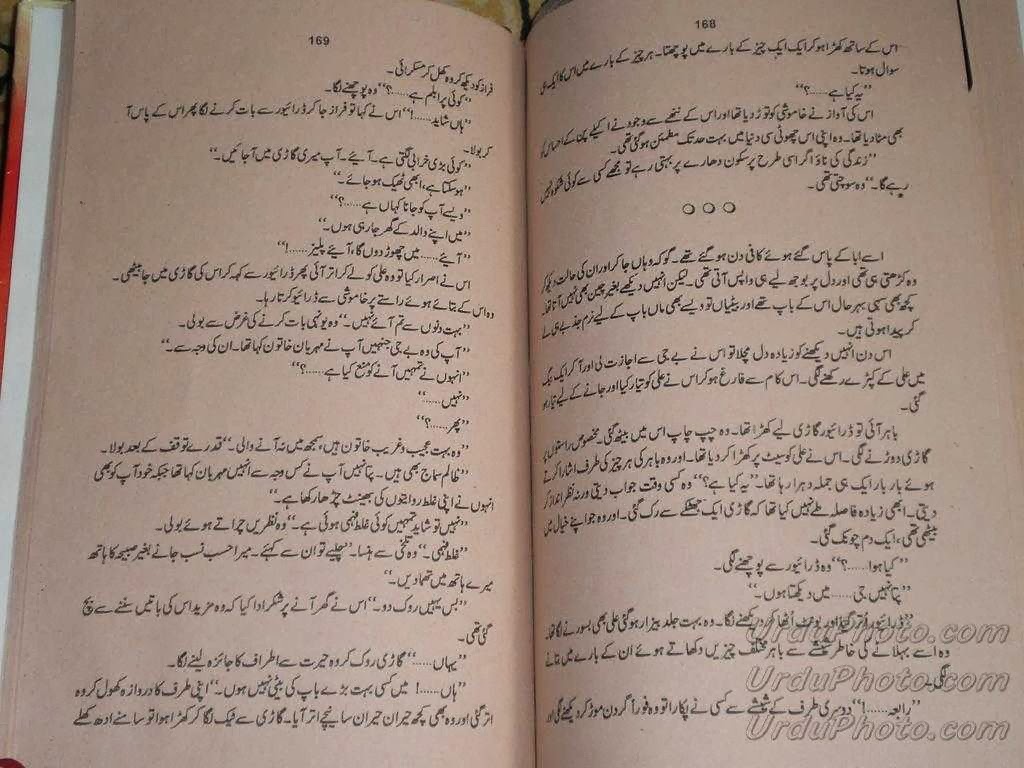 168
اس کے ساتھ کھڑا ہو کر ایک ایک چیز کے بارے میں پوچھتا۔ ہر چیز کے بارے میں اس کا ایک ہی
سوال ہوتا۔
”یہ کیا ہے......؟“
اس کی آواز نے خاموشی کو توڑ دیا تھا اور اس کے ننھے سے وجود نے اکیلے پن کے احساس کو
بھی مٹا دیا تھا۔ وہ اپنی اس چھوٹی سی دنیا میں بہت حد تک مطمئن ہو گئی تھی۔
”زندگی کی ناؤ اگر اسی طرح پر سکون دھارے پر بہتی رہے تو مجھے کسی سے کوئی شکوہ نہیں
رہے گا۔“ وہ سوچتی تھی۔
○○○
اسے ابا کے پاس گئے ہوئے کافی دن ہو گئے تھے۔ گو کہ وہاں جا کر اور ان کی حالت دیکھ کر
وہ کڑھتی ہی تھی اور دل پر بوجھ لیے ہی واپس آتی تھی۔ لیکن انہیں دیکھے بغیر چین بھی نہیں آتا تھا۔
کچھ بھی سہی بہرحال اس کے باپ تھے اور بیٹیاں تو ویسے بھی ماں باپ کے لیے نرم جذبے ہی لے
کر پیدا ہوتی ہیں۔
اس دن انہیں دیکھنے کو زیادہ دل مچلا تو اس نے بے جی سے اجازت لی اور آ کر ایک بیگ
میں علی کے کپڑے رکھنے لگی۔ اس کام سے فارغ ہو کر اس نے علی کو تیار کیا اور جانے کے لیے تیار ہو
گئی۔
باہر آئی تو ڈرائیور گاڑی لیے کھڑا تھا۔ وہ چپ چاپ اس میں بیٹھ گئی۔ مخصوص راستوں پر
گاڑی دوڑنے لگی۔ اس نے علی کو سیٹ پر کھڑا کر دیا تھا۔ اور وہ باہر کی ہر چیز کی طرف اشارا کرتے
ہوئے بار بار ایک ہی جملہ دہرا رہا تھا۔ ”یہ کیا ہے؟“ وہ کسی وقت جواب دیتی ورنہ نظر انداز کر
دیتی۔ ابھی زیادہ فاصلہ طے نہیں کیا تھا کہ گاڑی ایک جھٹکے سے رک گئی۔ اور وہ جو اپنے خیال میں
بیٹھی تھی، ایک دم چونک گئی۔
”کیا ہوا......؟“ وہ ڈرائیور سے پوچھنے لگی۔
”پتا نہیں جی...... میں دیکھتا ہوں۔“
ڈرائیور اتر گیا اور بونٹ اٹھا کر دیکھنے لگا۔ وہ بہت جلد بیزار ہو گئی علی بھی بسورنے لگا تھا۔
وہ اسے بہلانے کی خاطر شیشے سے باہر مختلف چیزیں دکھاتے ہوئے ان کے بارے میں بتانے
لگی۔
”رابعہ......!“ دوسری طرف کے شیشے سے کسی نے پکارا تو وہ فوراً گردن موڑ کر دیکھنے لگی اور
169
فراز کو دیکھ کر وہ کھل کر مسکرائی۔
”کوئی پرابلم ہے......؟“ وہ پوچھنے لگا۔
”ہاں شاید......!“ اس نے کہا تو فراز جا کر ڈرائیور سے بات کرنے لگا پھر اس کے پاس آ
کر بولا۔
”کوئی بڑی خرابی لگتی ہے۔ آیئے۔ آپ میری گاڑی میں آ جائیں۔“
”ہو سکتا ہے، ابھی ٹھیک ہو جائے۔“
”ویسے آپ کو جانا کہاں ہے......؟“
”میں اپنے والد کے گھر جا رہی ہوں۔“
”آیئے...... میں چھوڑ دوں گا، آیئے پلیز......!“
اس نے اصرار کیا تو وہ علی کو لے کر اتر آئی پھر ڈرائیور سے کہہ کر اس کی گاڑی میں جا بیٹھی۔
وہ اس کے بتائے ہوئے راستے پر خاموشی سے ڈرائیو کرتا رہا۔
”بہت دنوں سے تم آئے نہیں۔“ وہ یونہی بات کرنے کی غرض سے بولی۔
”آپ کی وہ بے جی جنہیں آپ نے مہربان خاتون کہا تھا۔ ان کی وجہ سے۔“
”انہوں نے تمہیں آنے کو منع کیا ہے......؟“
”نہیں......“
”پھر......؟“
”وہ بہت عجیب و غریب خاتون ہیں، سمجھ میں نہ آنے والی۔“ قدرے توقف کے بعد بولا۔
”ظالم سماج بھی ہیں۔ پتا نہیں آپ نے کس وجہ سے انہیں مہربان کہا تھا جبکہ خود آپ کو بھی
انہوں نے اپنی غلط روایتوں کی بھینٹ چڑھا رکھا ہے۔“
”نہیں تو شاید تمہیں کوئی غلط فہمی ہوئی ہے۔“ وہ نظریں چراتے ہوئے بولی۔
”غلط فہمی۔“ وہ تلخی سے ہنسا۔ ”چلیے تو ان سے کہئے۔ میرا حسب نسب جانے بغیر صبیحہ کا ہاتھ
میرے ہاتھ میں تھما دیں۔“
”بس یہیں روک دو۔“ اس نے گھر آنے پر شکر ادا کیا کہ وہ مزید اس کی باتیں سننے سے بچ
گئی تھی۔
”یہاں......“ گاڑی روک کر وہ حیرت سے اطراف کا جائزہ لینے لگا۔
”ہاں......! میں کسی بہت بڑے باپ کی بیٹی نہیں ہوں۔“ اپنی طرف کا دروازہ کھول کر وہ
اتر گئی اور وہ بھی کچھ حیران حیران سا نیچے اتر آیا۔ گاڑی سے ٹیک لگا کر کھڑا ہوا تو سامنے ادھ کھلے
UrduPhoto.com
UrduPhoto.com
UrduPhoto.com